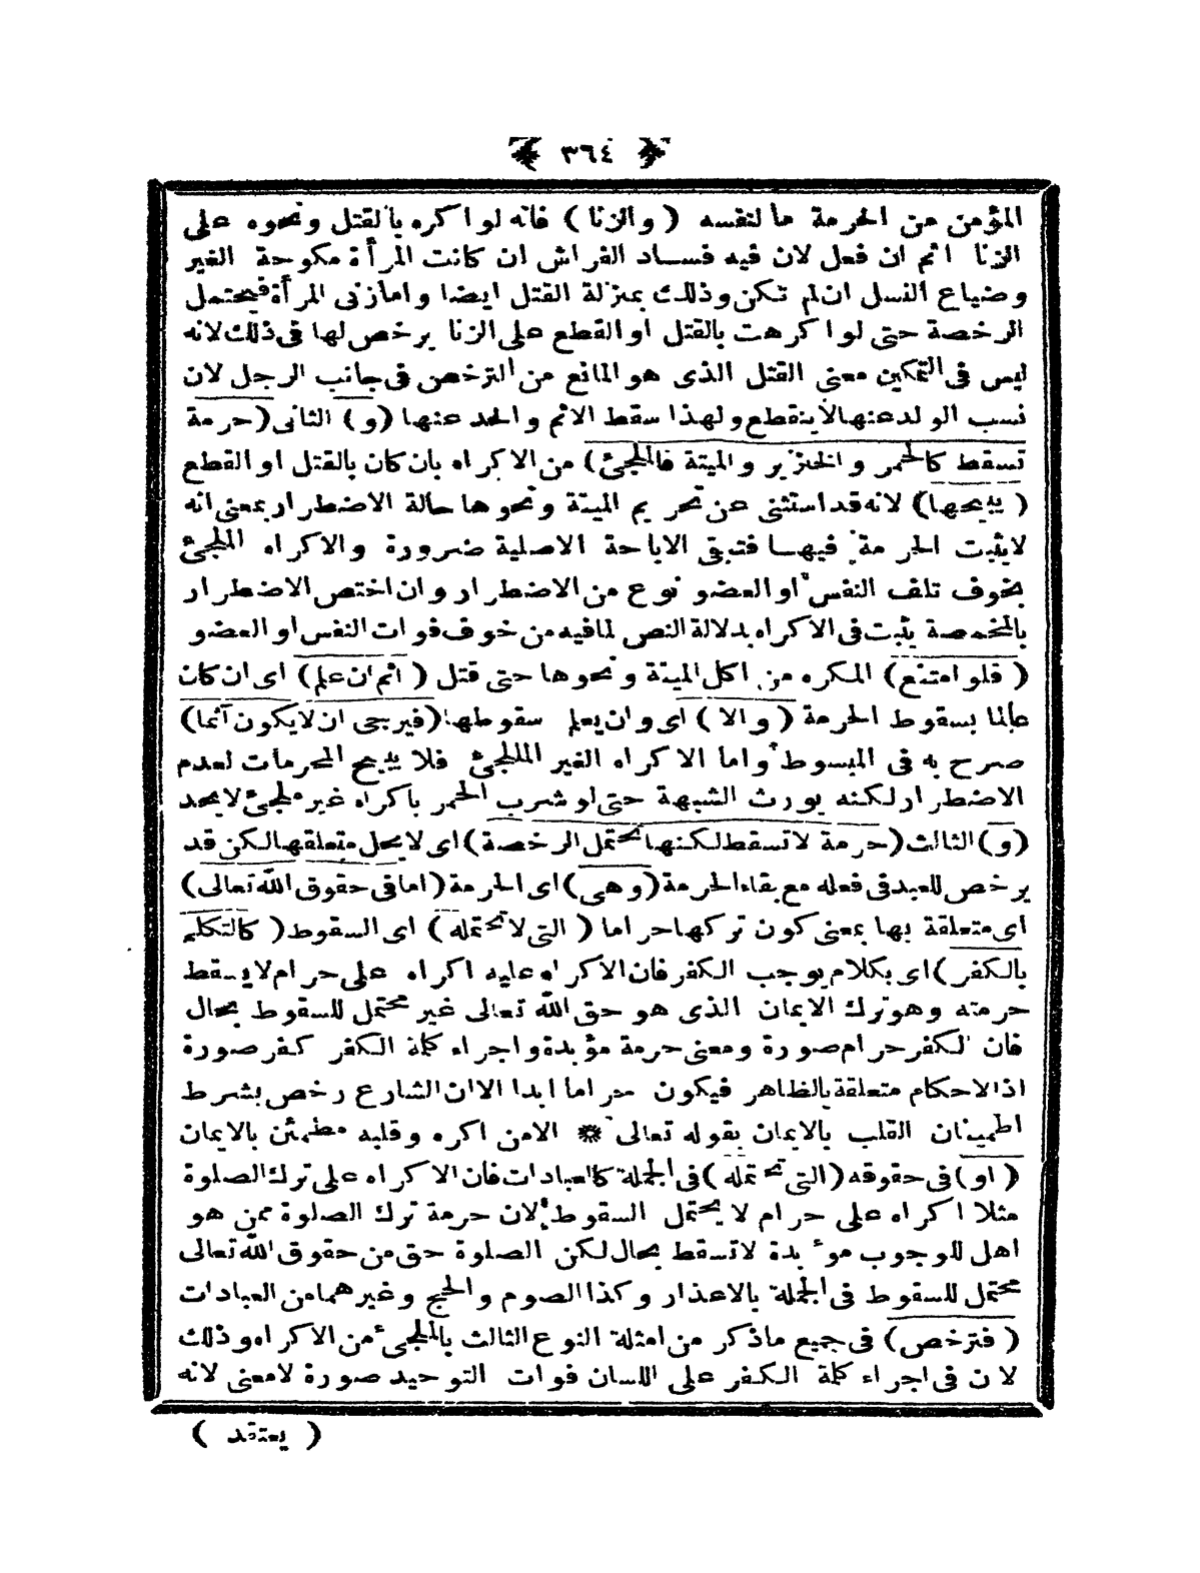 ﴿ ٣٦٤ ﴾
المؤمن من الحرمة ما لنفسه ( والزنا ) فانه لو اكره بالقتل ونحوه على
الزنا اثم ان فعل لان فيه فساد الفراش ان كانت المرأة منكوحة الغير
وضياع النسل ان لم تكن وذلك بمنزلة القتل ايضا واما زنى المرأة فيحتمل
الرخصة حتى لو اكرهت بالقتل او القطع على الزنا يرخص لها فى ذلك لانه
ليس فى التمكين معنى القتل الذى هو المانع من الترخص فى جانب الرجل لان
نسب الولد عنها لا ينقطع ولهذا سقط الاثم والحد عنها (و) الثانى (حرمة
تسقط كالخمر والخنزير والميتة فالملجئ) من الاكراه بان كان بالقتل او القطع
( يبيحها) لانه قد استثنى عن تحريم الميتة ونحوها حالة الاضطرار بمعنى انه
لا يثبت الحرمة فيها فتبقى الاباحة الاصلية ضرورة والاكراه الملجئ
بخوف تلف النفس او العضو نوع من الاضطرار وان اختص الاضطرار
بالمخمصة يثبت فى الاكراه بدلالة النص لما فيه من خوف فوات النفس او العضو
( فلو امتنع) المكره من اكل الميتة ونحوها حتى قتل ( اثم ان علم) اى ان كان
عالما بسقوط الحرمة ( والا ) اى وان يعلم سقوطها (فيرجى ان لا يكون آثما)
صرح به فى المبسوط واما الاكراه الغير الملجئ فلا يبيح المحرمات لعدم
الاضطرار لكنه يورث الشبهة حتى لو شرب الخمر باكراه غير ملجئ لا يحد
(و) الثالث (حرمة لا تسقط لكنها تحتمل الرخصة) اى لا يحل متعلقها لكن قد
يرخص للعبد فى فعله مع بقاء الحرمة (وهى) اى الحرمة (اما فى حقوق الله تعالى)
اى متعلقة بها بمعنى كون تركها حراما ( التى لا تحتمله ) اى السقوط ( كالتكلم
بالكفر ) اى بكلام يوجب الكفر فان الاكراه عليه اكراه على حرام لا يسقط
حرمته وهو ترك الايمان الذى هو حق الله تعالى غير محتمل للسقوط بحال
فان الكفر حرام صورة ومعنى حرمة مؤبدة واجراء كلمة الكفر كفر صورة
اذ الاحكام متعلقة بالظاهر فيكون حراما ابدا الا ان الشارع رخص بشرط
اطمينان القلب بالايمان بقوله تعالى ❋ الا من اكره وقلبه مطمئن بالايمان
( او) فى حقوقه (التى تحتمله ) فى الجملة كالعبادات فان الاكراه على ترك الصلوة
مثلا اكراه على حرام لا يحتمل السقوط لان حرمة ترك الصلوة ممن هو
اهل للوجوب موءبدة لا تسقط بحال لكن الصلوة حق من حقوق الله تعالى
محتمل للسقوط فى الجملة بالاعذار وكذا الصوم والحج وغيرهما من العبادات
( فترخص ) فى جميع ما ذكر من امثلة النوع الثالث بالملجئ من الاكراه وذلك
لان فى اجراء كلمة الكفر على اللسان فوات التوحيد صورة لا معنى لانه
( يعتقد )